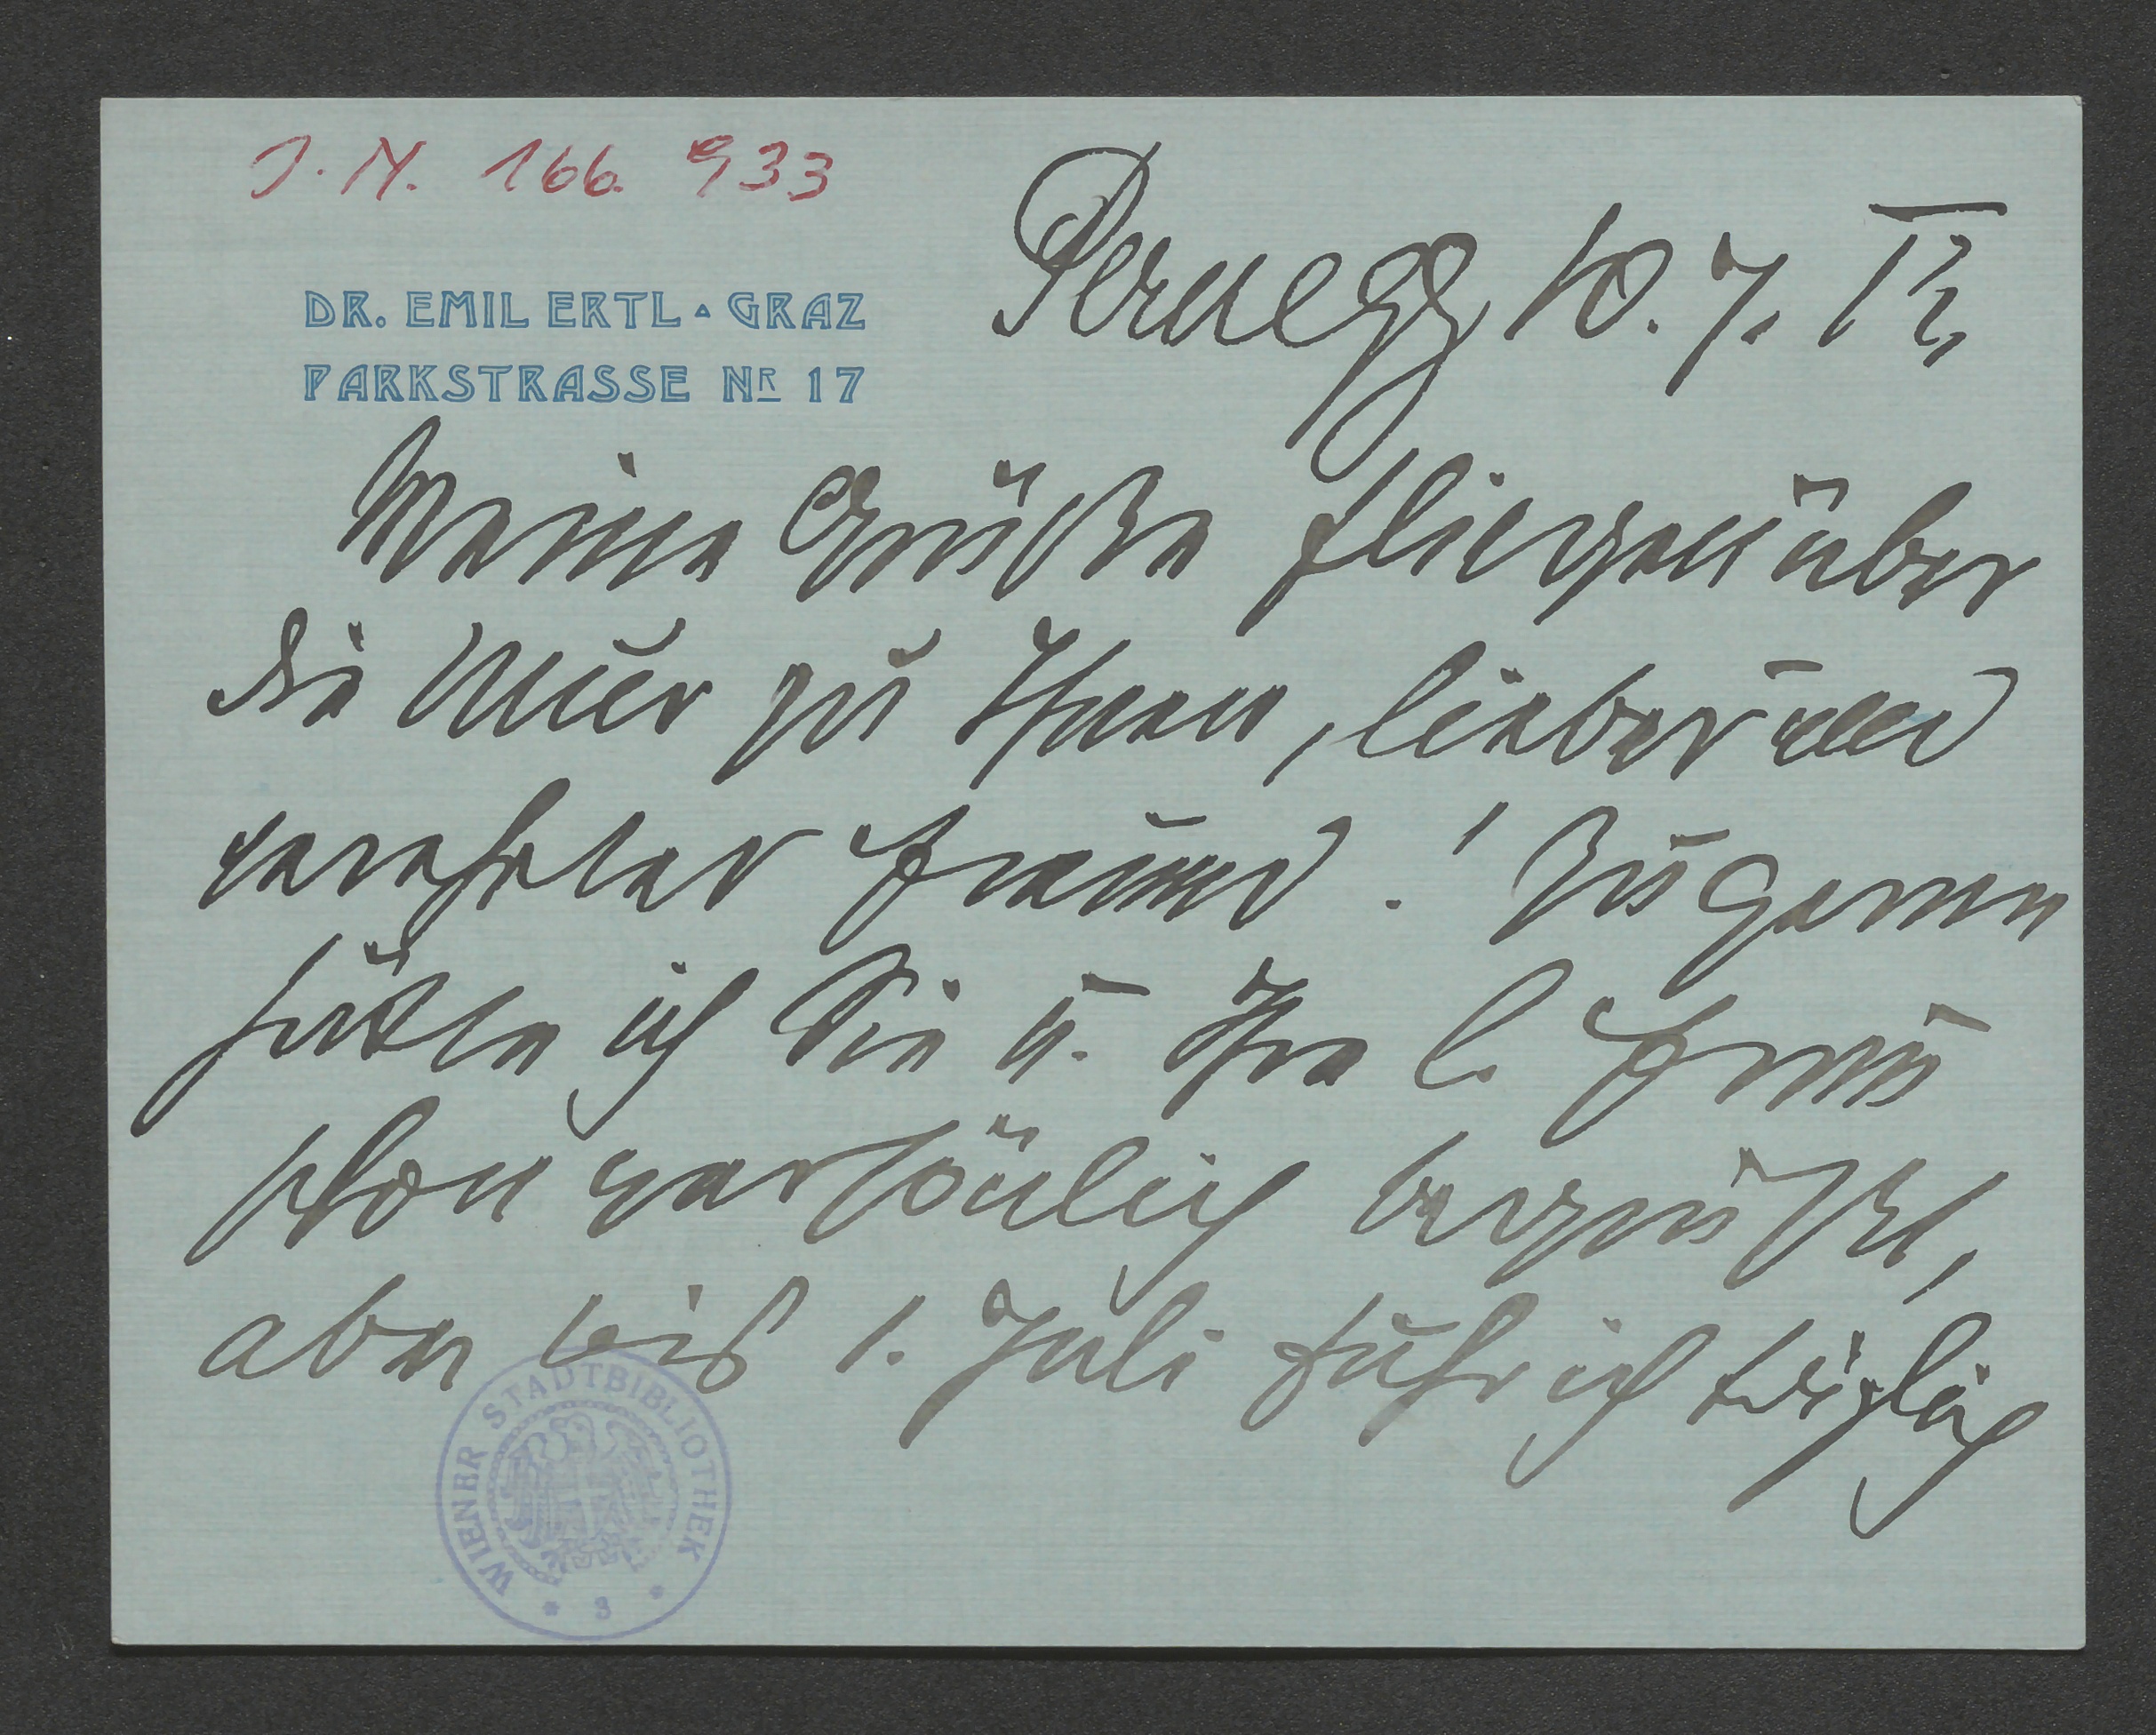 J. N. 166.933
DR. EMIL ERTL ▵ GRAZ
PARKSTRASSE Nr 17
Pernegg 10. 7. 12
Meine Grüße fliegen über
die Mur zu Ihnen, lieber und
verehrter Freund! Zu gerne
hätte ich Sie u. Ihre l. Frau
schon persönlich begrüßt,
aber bis 1. Juli fuhr ich täglich
WIENER STADTBIBLIOTHEK